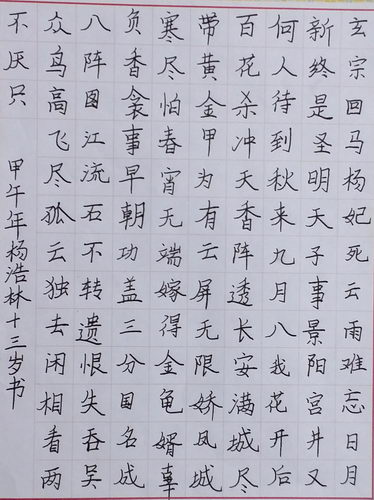 玄宗回马杨妃死云雨难忘日月
新终是圣明天子事景阳宫井又
何人待到秋来九月八我花开后
百花杀冲天香阵透长安满城尽
带黄金甲为有云屏无限娇凤城
寒尽怕春宵无端嫁得金龟婿辜
负香衾事早朝功盖三分国名成
八阵图江流石不转遗恨失吞吴
众鸟高飞尽孤云独去闲相看两
不厌只 甲午年杨浩林十三岁书